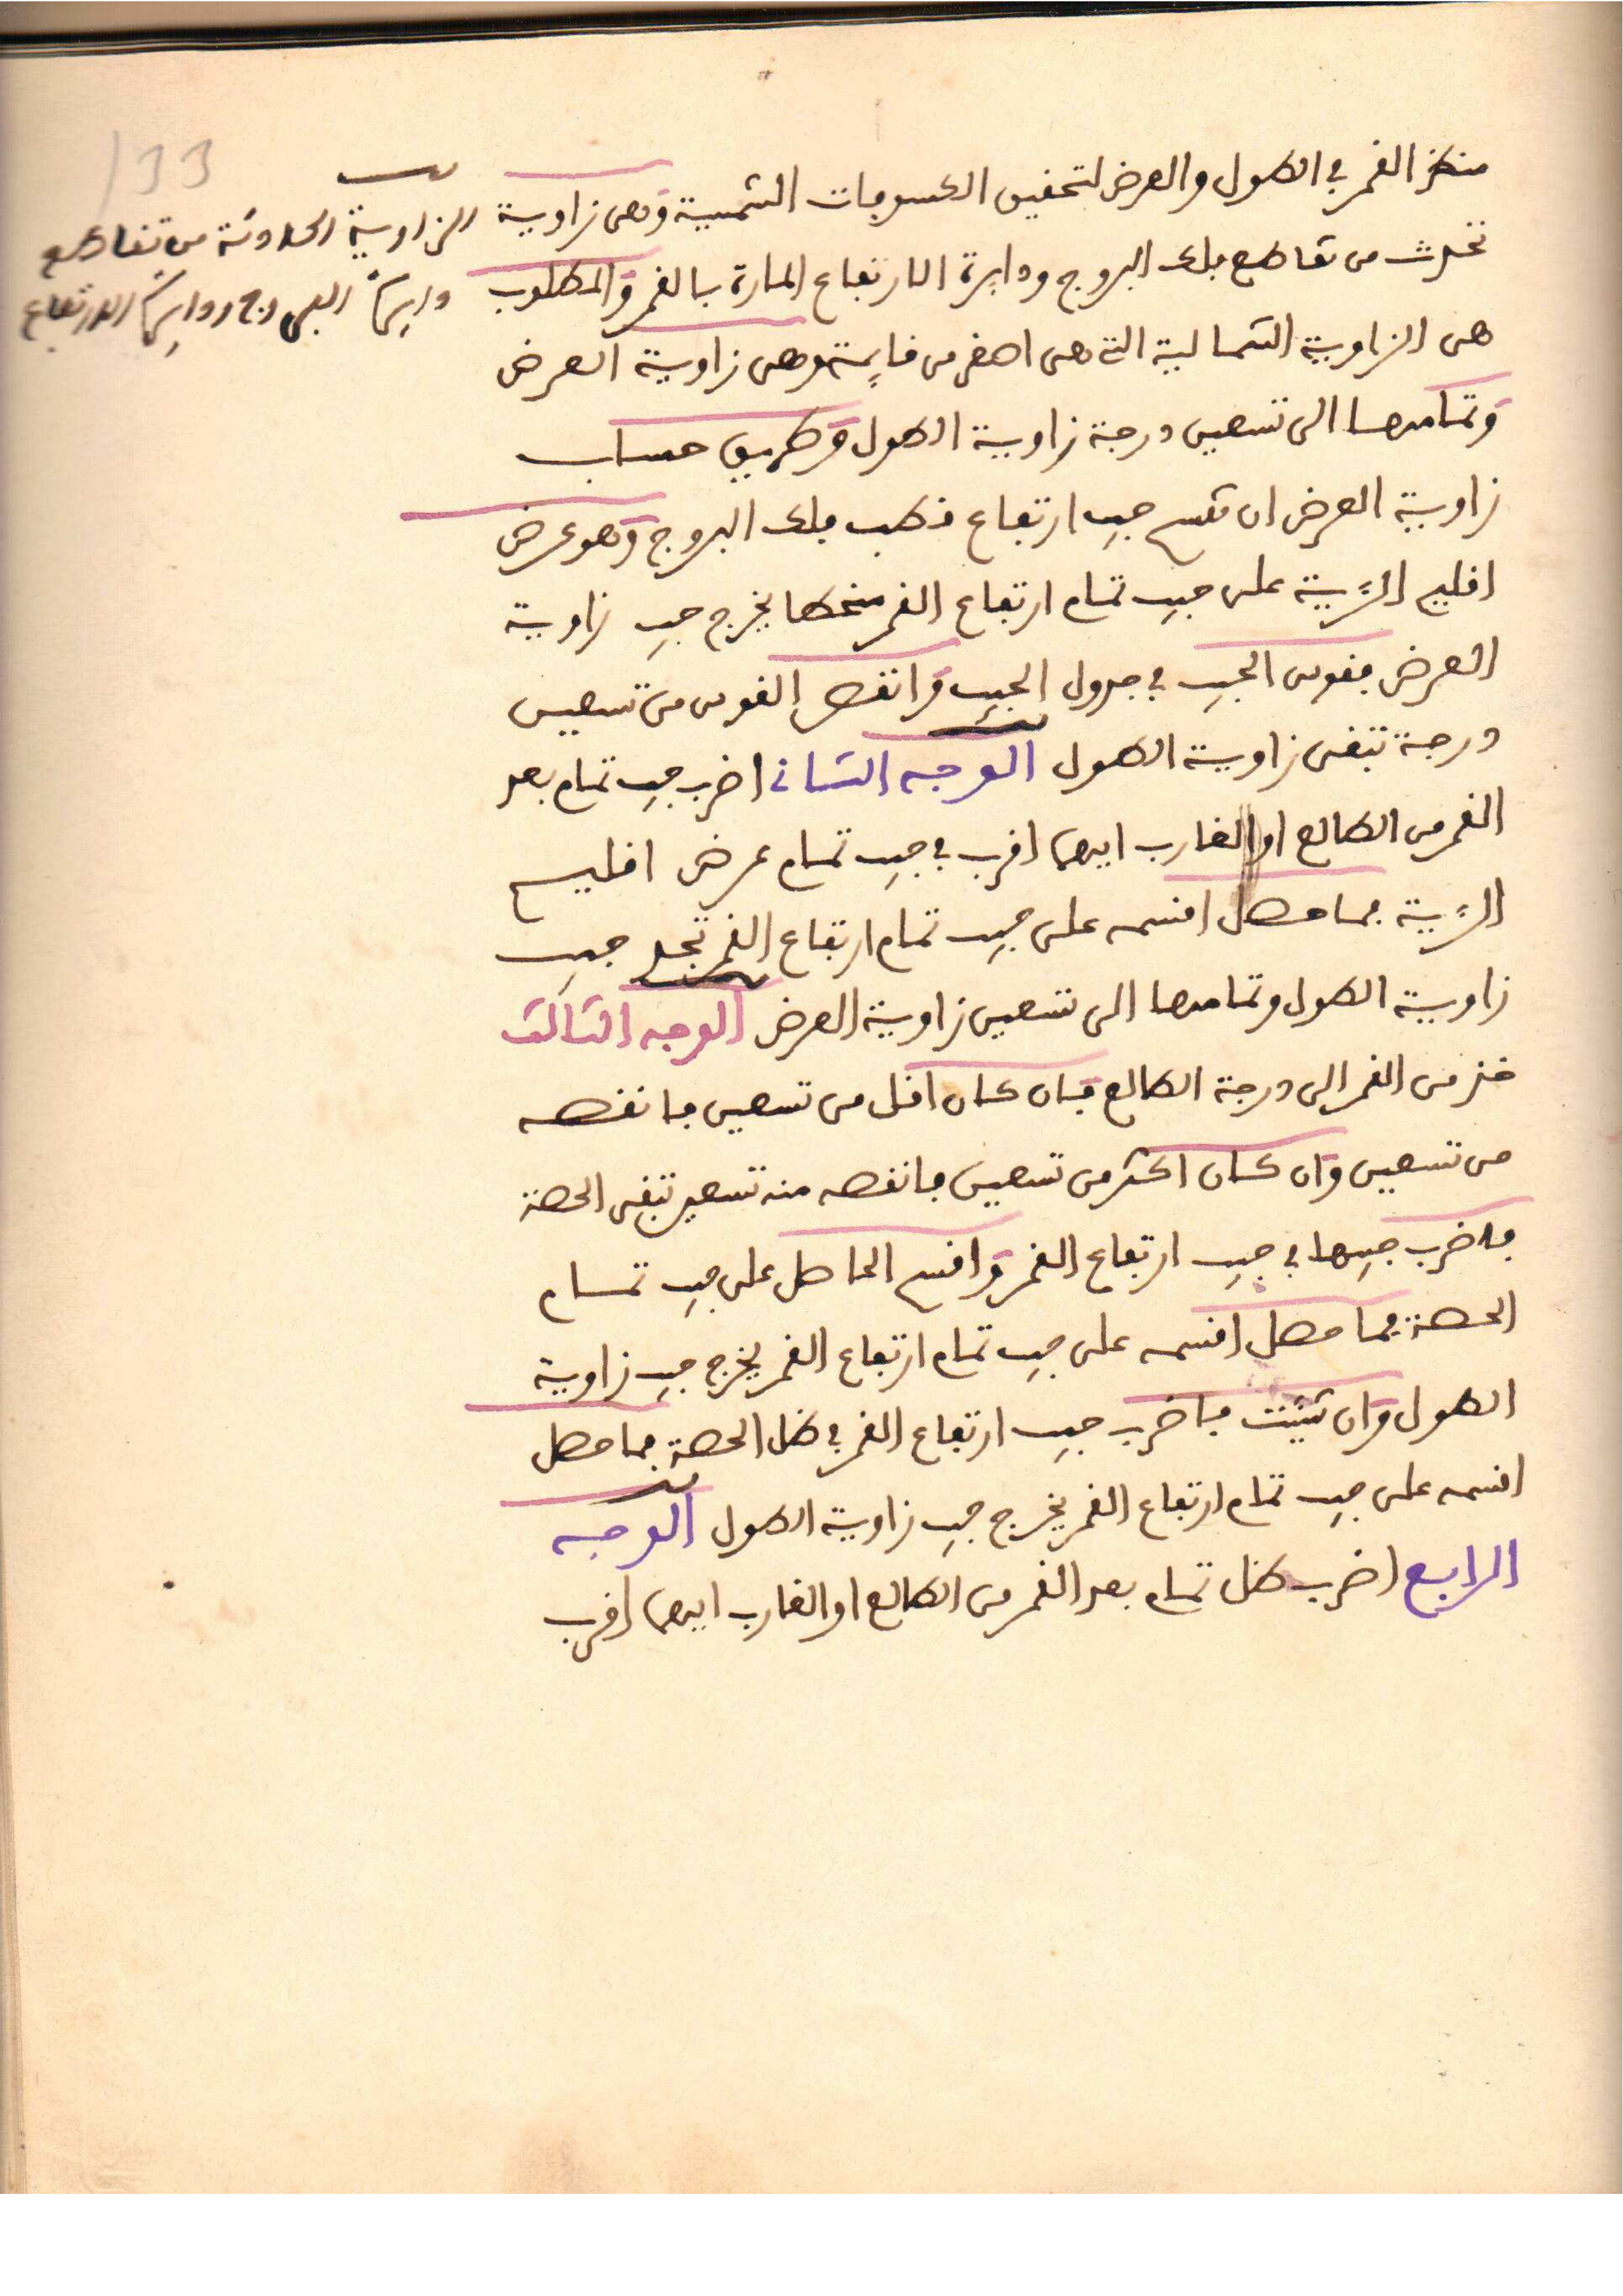 133
منظر القمر في الطول والعرض لتحقيق الكسوفات الشمسية وهي زاوية
تحدث من تقاطع فلك البروج ودايرة الارتفاع المارة بالقمر والمطلوب
هي الزاوية الشمالية التي هي اصغر من قايمة وهي زاوية العرض
وتمامها الى تسعين درجة زاوية الطول وطريق حساب
زاوية العرض ان تقسم جيب ارتفاع قطب فلك البروج وهو عرض
اقليم الرؤية على جيب تمام ارتفاع القمر منحطا يخرج جيب زاوية
العرض فقوس الجيب في جدول الجيب وانقص القوس من تسعين
درجة تبقى زاوية الطول الوجه الثاني اضرب جيب تمام بعد
القمر من الطالع او الغارب ايهما اقرب في جيب تمام عرض اقليم
الرؤية فما حصل اقسمه على جيب تمام ارتفاع القمر تجد جيب
زاوية الطول وتمامها الى تسعين زاوية العرض الوجه الثالث
خذ من القمر الى درجة الطالع فان كان اقل من تسعين فانقصه
من تسعين وان كان اكثر من تسعين فانقصه منه تسعين تبقى الحصة
فاضرب جيبها في جيب ارتفاع القمر واقسم الحاصل على جيب تمام
الحصة فما حصل اقسمه على جيب تمام ارتفاع القمر يخرج جيب زاوية
الطول وان شيئت فاضرب جيب ارتفاع القمر في ظل الحصة فما حصل
اقسمه على جيب تمام ارتفاع القمر يخرج جيب زاوية الطول الوجه
الرابع اضرب ظل تمام بعد القمر من الطالع او الغارب ايهما اقرب
الزاوية الحادثة من تقاطع
دايرة البروج ودايرة الارتفاع